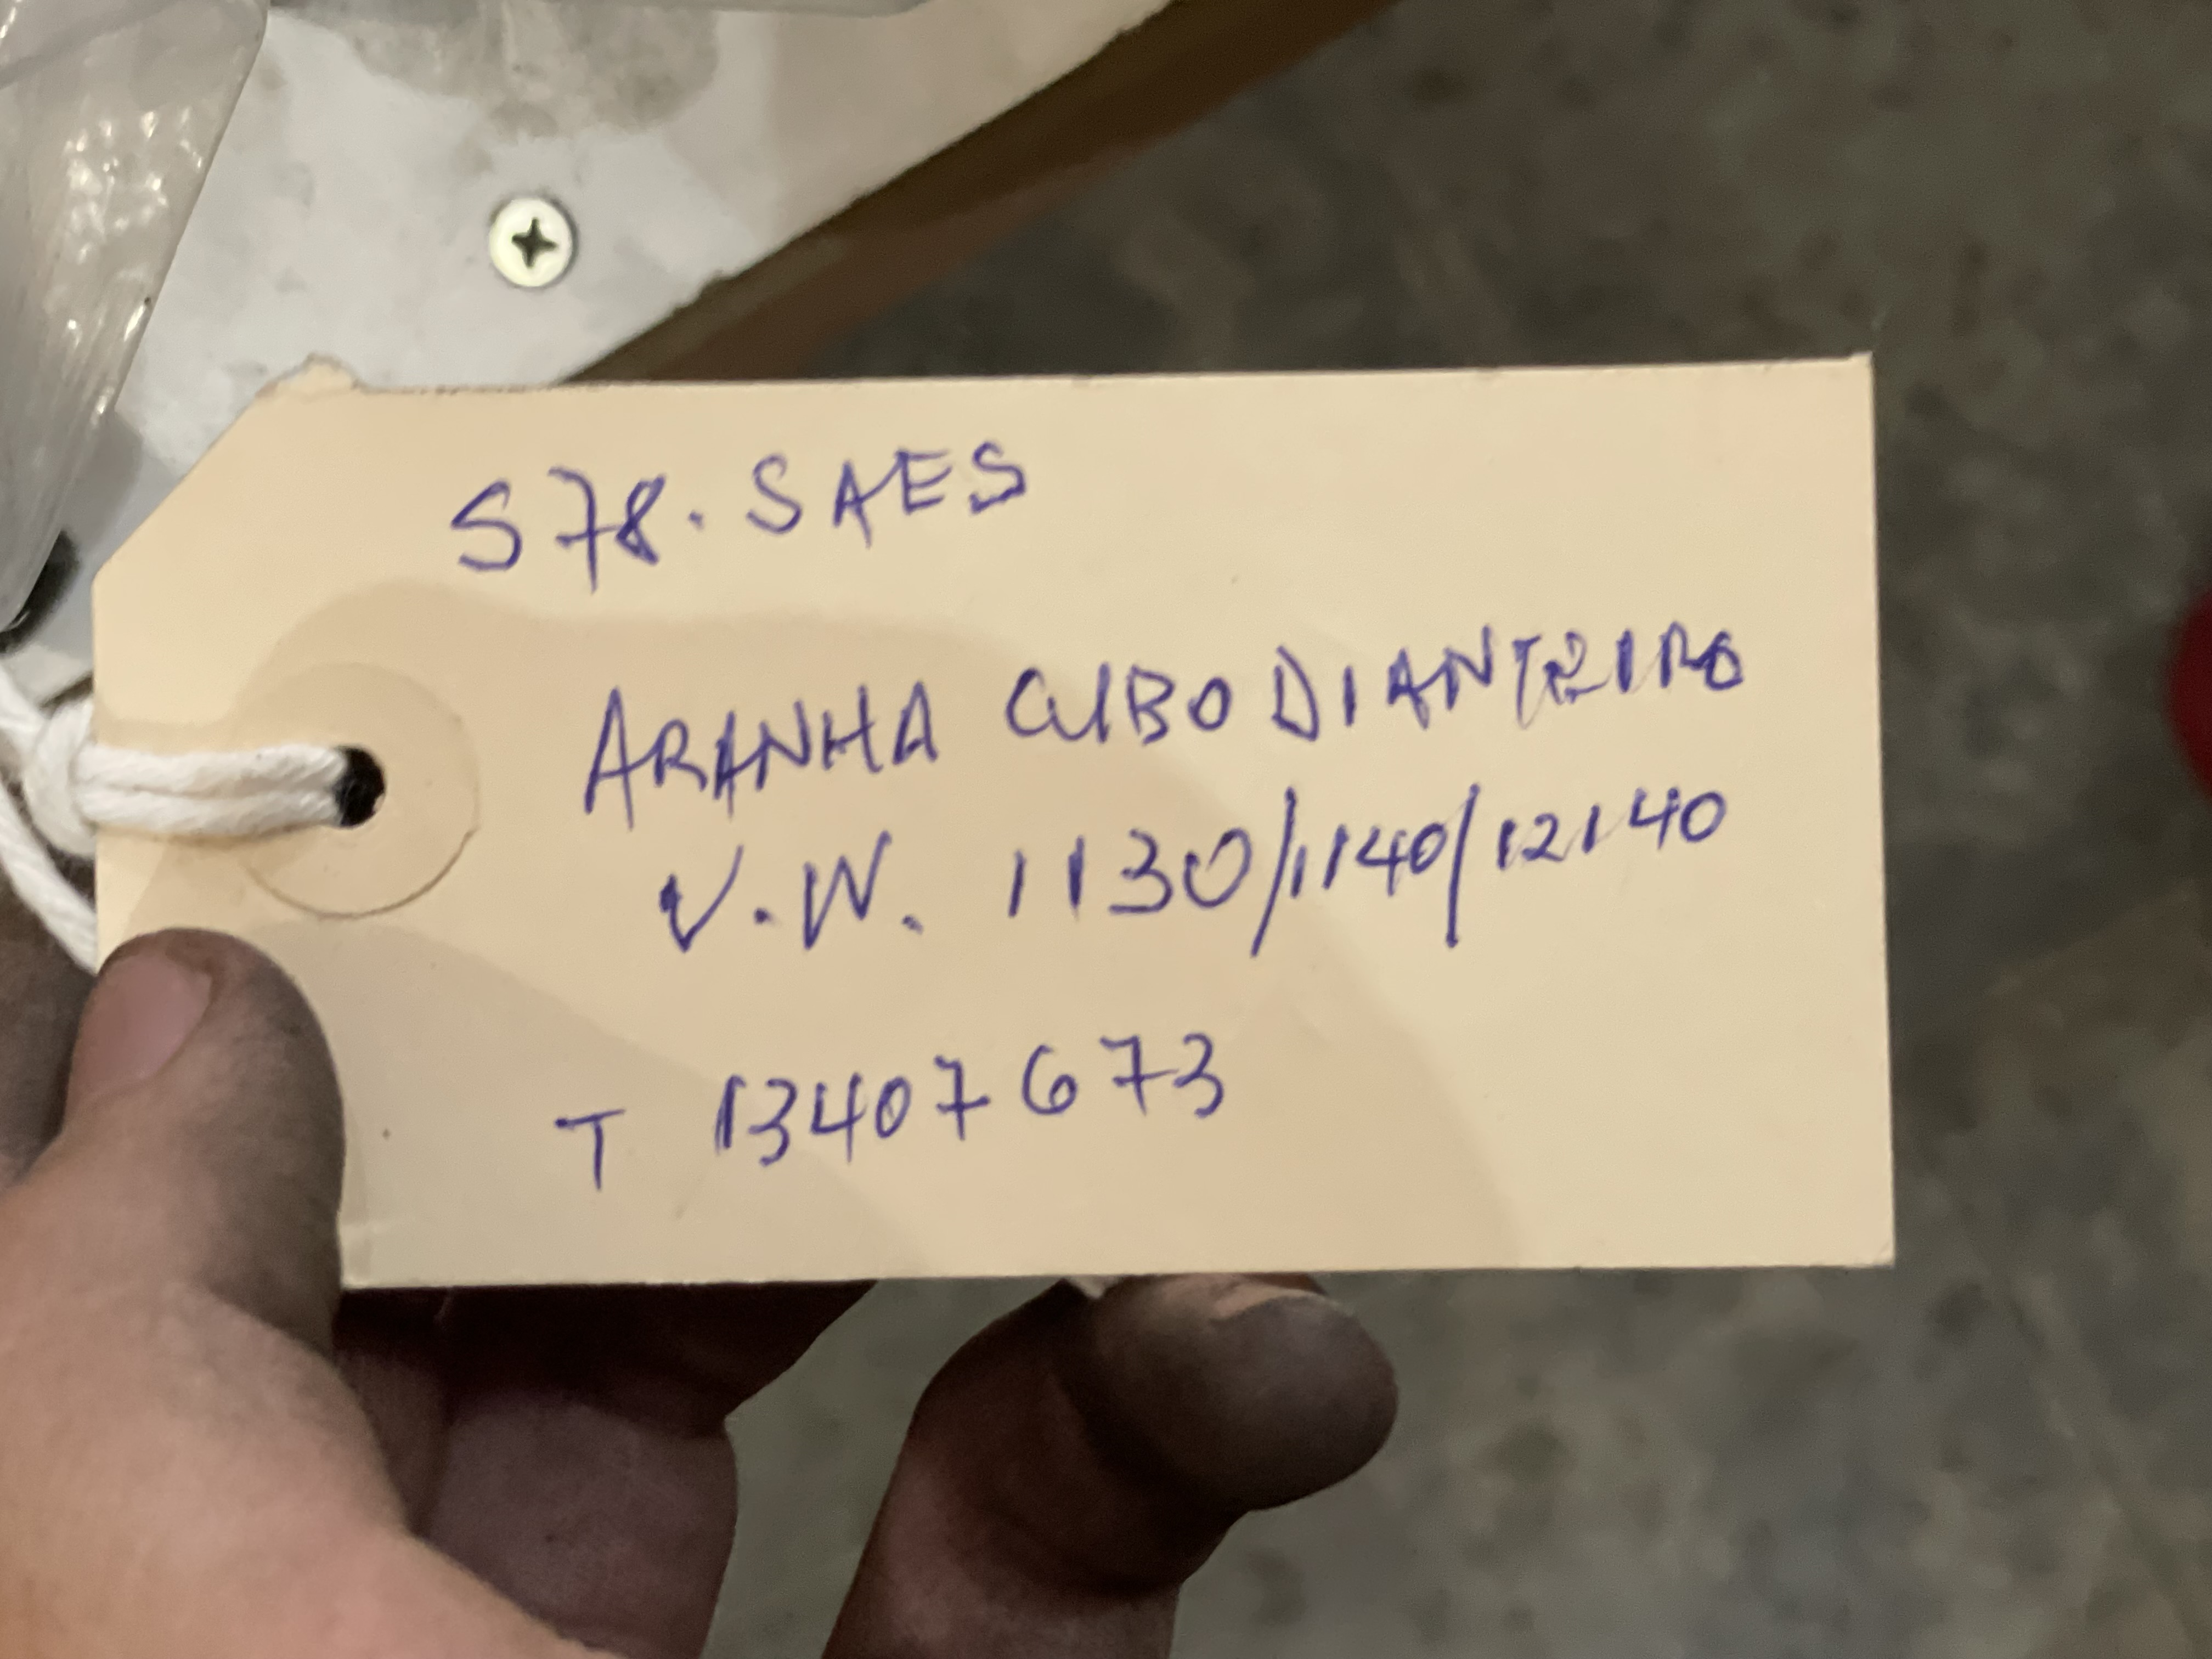 578. SAES
ARANHA CUBO DIANTEIRO
V.W. 1130/1140/12140
T 13407673